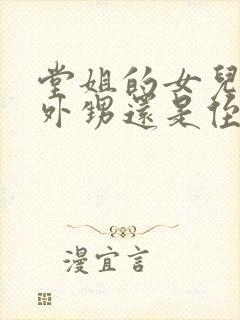 堂姐的女兒
外甥還是侄
漫宜言